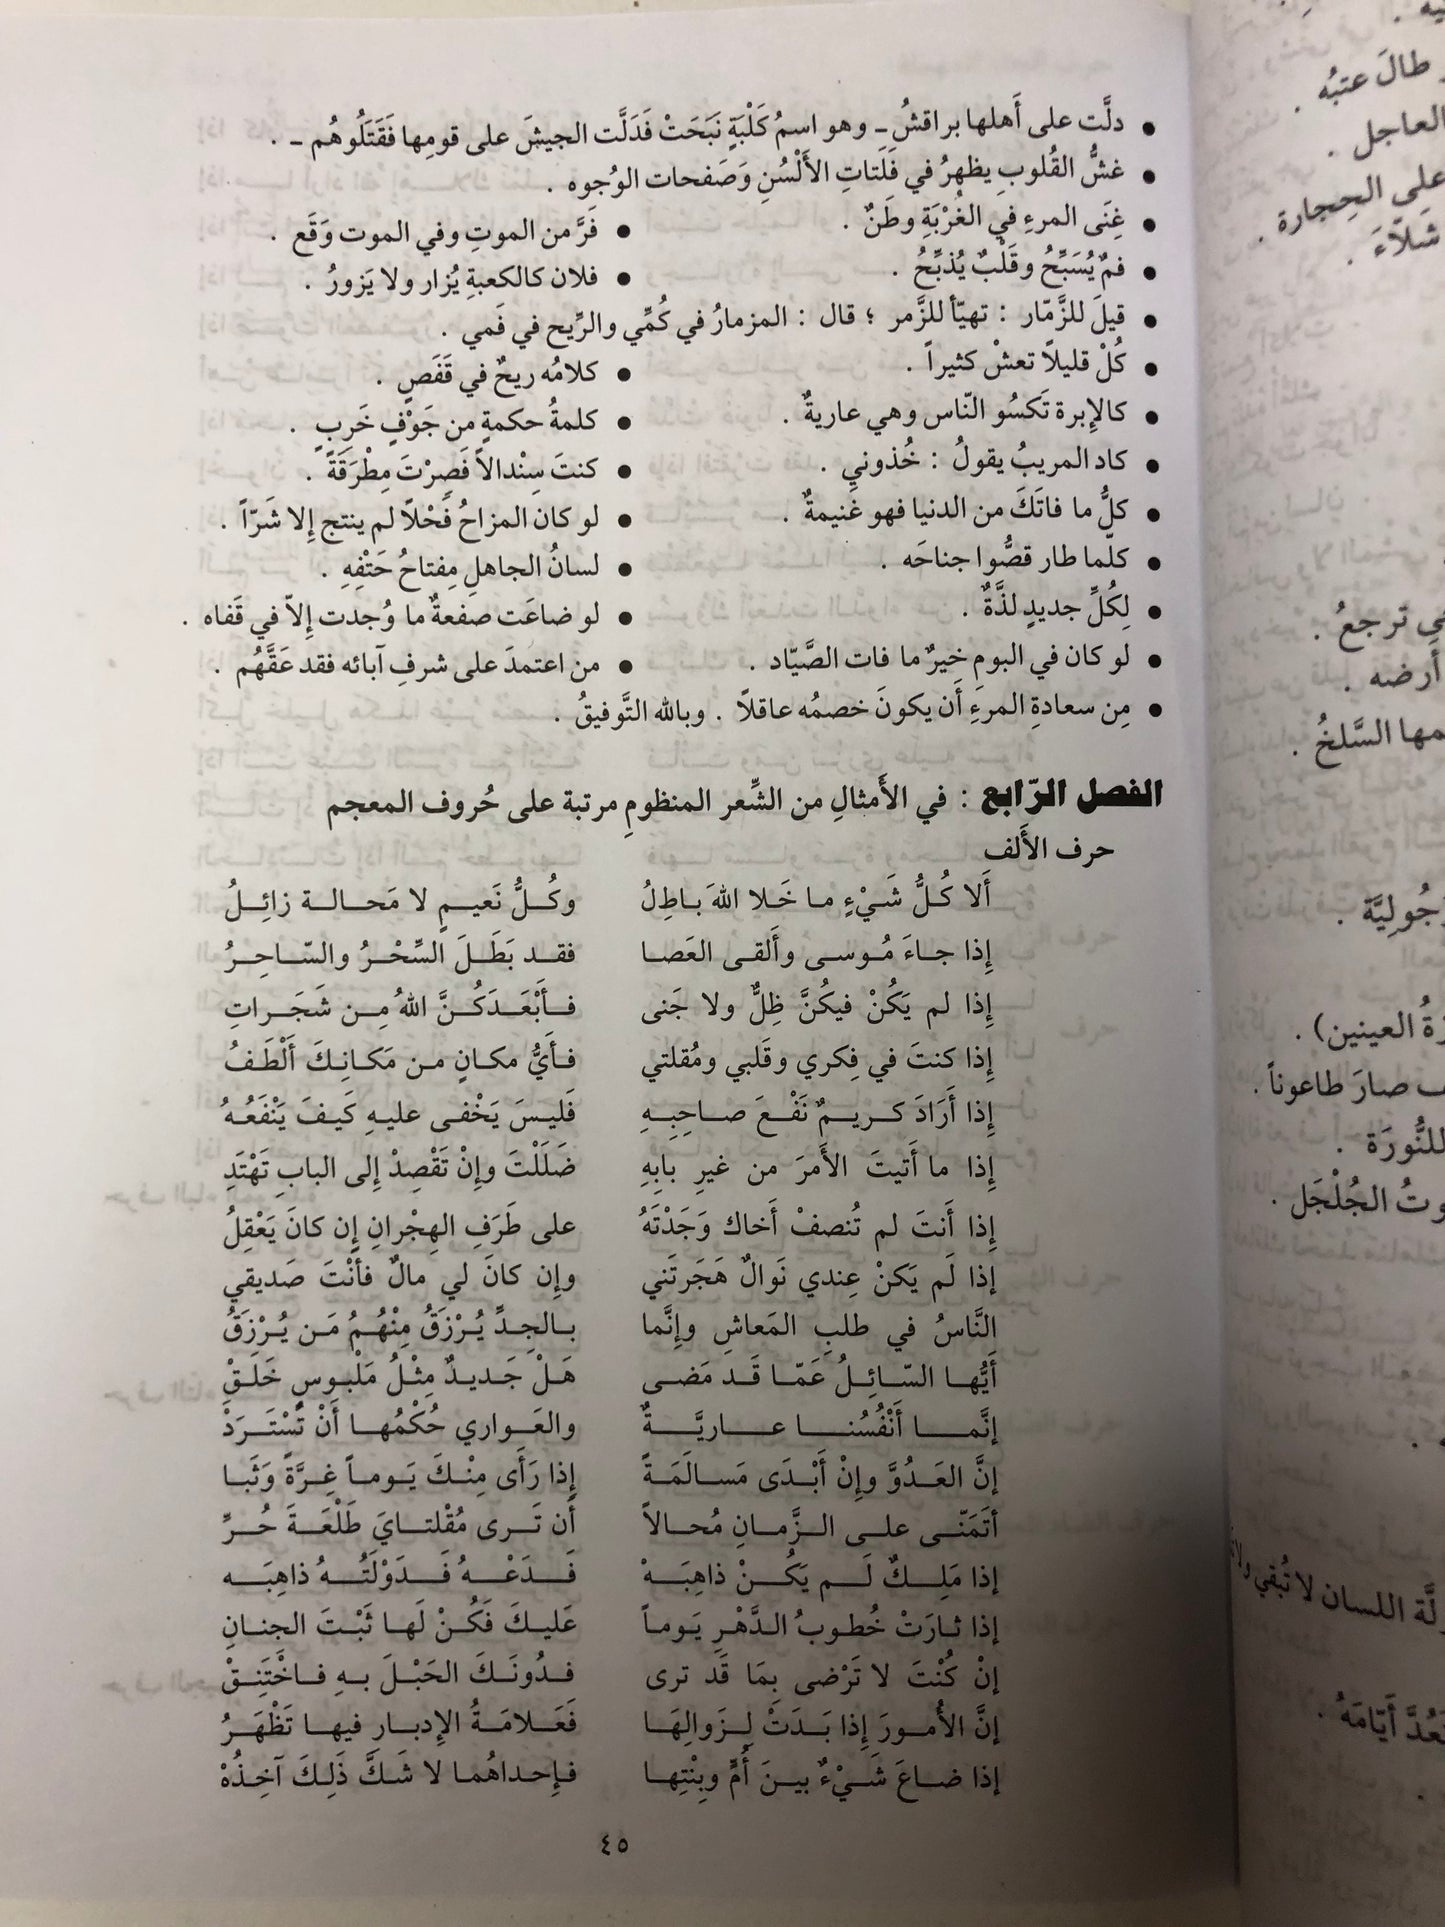 • دلَّت على أَهلها براقشُ ـ وهو اسمُ كَلْبَةٍ نَبَحَتْ فَدَلَّت الجيشَ على قومِها فَقَتَلُوهُم ـ .
• غشُّ القُلوبِ يظهرُ في فَلَتاتِ الأَلْسُنِ وَصَفحات الوُجوه .
• غِنَى المرءِ في الغُرْبَةِ وطَنٌ . • فَرَّ من الموتِ وفي الموت وَقَع .
• فمٌ يُسَبِّحُ وقَلْبٌ يُذبِّحُ . • فلان كالكعبةِ يُزار ولا يَزورُ .
• قيلَ للزَّمّار : تهيّأ للزَّمر ؛ قال : المزمارُ في كُمِّي والرِّيح في فَمي .
• كُلْ قليلاً تعشْ كثيراً . • كلامُه ريحٌ في قَفَصٍ .
• كالإِبرة تَكسُو النّاس وهي عاريةٌ . • كلمةُ حكمةٍ من جَوْفٍ خَرِبٍ .
• كاد المريبُ يقولُ : خُذوني . • كنتَ سِنْدالاً فَصِرْتَ مِطْرَقَةً .
• كلُّ ما فاتَكَ من الدنيا فهو غَنيمةٌ . • لو كان المزاحُ فَحْلاً لم ينتج إِلا شَرّاً .
• كلّما طار قصُّوا جناحَه . • لسانُ الجاهلِ مِفتاحُ حَتْفِهِ .
• لِكُلِّ جديدٍ لذَّةٌ . • لو ضاعَت صفعةٌ ما وُجدت إِلاّ في قَفاه .
• لو كان في البوم خيرٌ ما فات الصَّيّاد . • من اعتمدَ على شرفِ آبائه فقد عَقَّهُم .
• مِن سعادةِ المرءِ أَن يكونَ خصمُه عاقلاً . وبالله التَّوفيقُ .
الفصل الرّابع : في الأَمثالِ من الشِّعر المنظومِ مرتبة على حُروف المعجم
حرف الأَلف
أَلا كُلُّ شَيْءٍ ما خَلا اللهَ باطِلُ وكُلُّ نَعيمٍ لا مَحالة زائِلُ
إِذا جاءَ مُوسى وأَلقى العَصا فقد بَطَلَ السِّحْرُ والسّاحِرُ
إِذا لم يَكُنْ فيكُنَّ ظِلٌّ ولا جَنى فأَبْعَدَكُنَّ اللهُ مِن شَجَراتِ
إِذا كنتَ في فِكري وقَلبي ومُقلتي فأَيُّ مكانٍ من مَكانِكَ أَلْطَفُ
إِذا أَرَادَ كريمٌ نَفْعَ صاحِبِهِ فَليسَ يَخْفى عليهِ كَيفَ يَنْفَعُهُ
إِذا ما أَتيتَ الأَمرَ من غيرِ بابِهِ ضَلَلْتَ وإِنْ تَقْصِدْ إِلى البابِ تَهْتَدِ
إِذا أَنتَ لم تُنصفْ أَخاك وَجَدْتَهُ على طَرَفِ الهِجْرانِ إِن كانَ يَعْقِلُ
إِذا لَم يَكنْ عِندي نَوالٌ هَجَرتَني وإِن كانَ لي مالٌ فأَنْتَ صَديقي
النَّاسُ في طلبِ المَعاشِ وإِنَّما بالجِدِّ يُرْزَقُ مِنْهُمُ مَن يُرْزِقُ
أَيُّها السّائِلُ عَمّا قَد مَضى هَلْ جَديدٌ مِثْلُ مَلْبوسٍ خَلَقْ
إنَّما أَنْفُسُنا عاريَّةٌ والعَواري حُكْمُها أَنْ تُسْتَرَدْ
إنَّ العَدُوَّ وإِنْ أَبْدَى مَسالَمَةً إِذا رَأَى مِنْكَ يَوماً غِرَّةً وَثَبا
أتَمَنّى على الزَّمانِ مُحالاً أَن تَرى مُقْلتايَ طَلْعَةَ حُرِّ
إذا مَلِكٌ لَم يَكُنْ ذاهِبَهْ فَدَعْهُ فَدَوْلَتُهُ ذاهِبَه
إذا ثارَتْ خُطوبُ الدَّهْرِ يَوماً عَليكَ فَكُنْ لَها ثَبْتَ الجنانِ
إنْ كُنْتَ لا تَرْضى بِمَا قَد ترى فدُونَكَ الحَبْلَ بهِ فاخْتَنِقْ
إنَّ الأُمورَ إِذا بَدَتْ لِزَوالِهَا فَعَلامَةُ الإِدبارِ فيها تَظْهَرُ
إذا ضاعَ شَيْءٌ بينَ أُمٍّ وبِنْتِها فإِحداهُما لا شَكَّ ذَلِكَ آخِذُهْ
٤٥
طالَ عتبُه .
العاجل .
على الحِجارة .
شَلاّءَ .
ترجعُ .
أَرضه .
السَّلخُ .
العينين) .
صارَ طاعوناً .
للنُّورَة .
الجُلْجَل .
اللسان لا تُبقي
أَيّامَهُ .